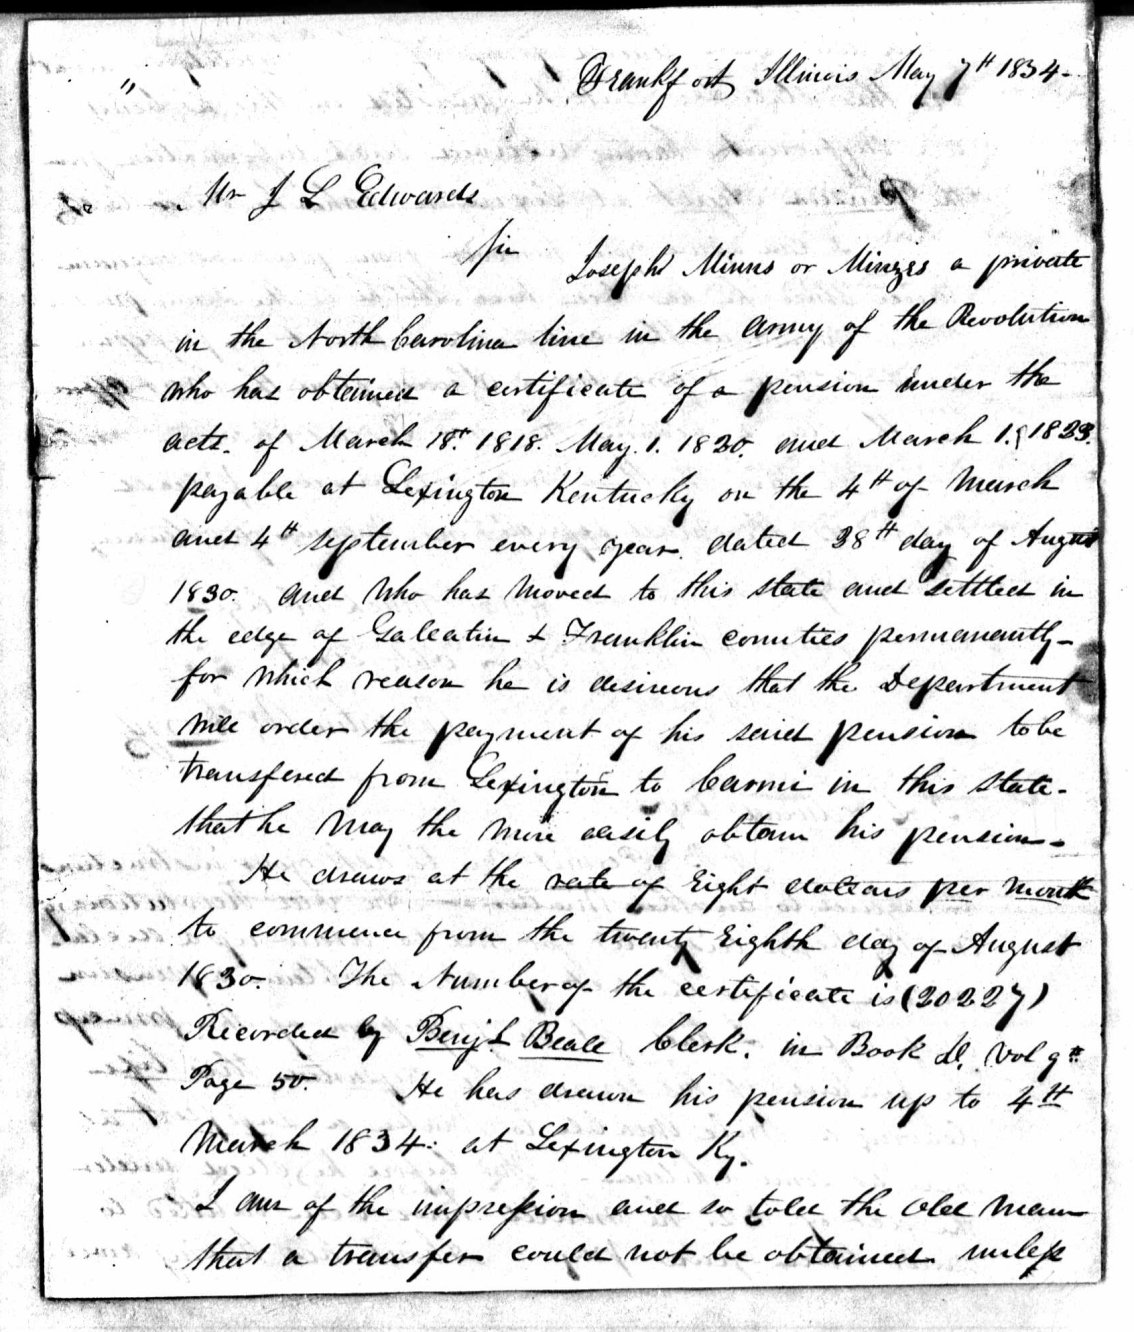 Frankfort Illinois May 7th 1834-
Mr J L Edwards
Sir
Joseph Minns or Minzes a private
in the North Carolina line in the army of the Revolution
who has obtained a certificate of a pension under the
acts. of March 18th. 1818. May. 1. 1820. and March 1. 1823.
payable at Lexington Kentucky on the 4th of March
and 4th september every year. dated 28th day of August
1830. and who has moved to this state and settled in
the edge of Galeatin & Franklin counties permanantly-
for which reason he is desireous that the Department
will order the payment of his said pension to be
transfered from Lexington to Carmi in this state-
that he may the more easily obtain his pension-
He draws at the rate of Eight dollars per month
to commence from the twenty Eighth day of August
1830. The Number of the certificate is (20227)
Recorded by Benj. L Beall Clerk. in Book D. Vol 9th
Page 50. He has drawn his pension up to 4th
March 1834: at Lexington Ky.
I am of the impression and so told the old man
that a transfer could not be obtained unless